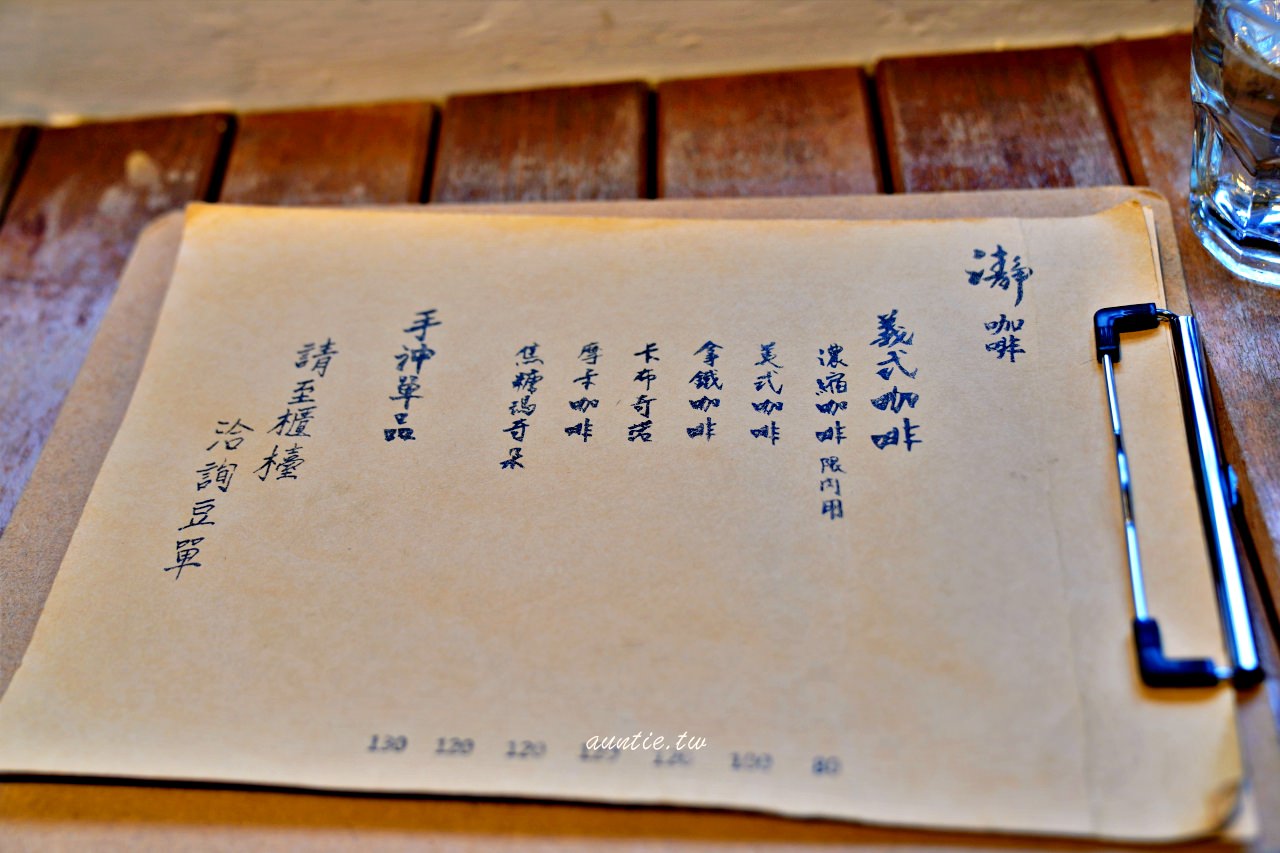 瀞咖啡
義式咖啡
濃縮咖啡 限內用 80
美式咖啡 100
拿鐵咖啡 120
卡布奇諾
摩卡咖啡 120
焦糖瑪奇朵 120
手沖單品 130
請至櫃檯
洽詢豆單
auntie.tw